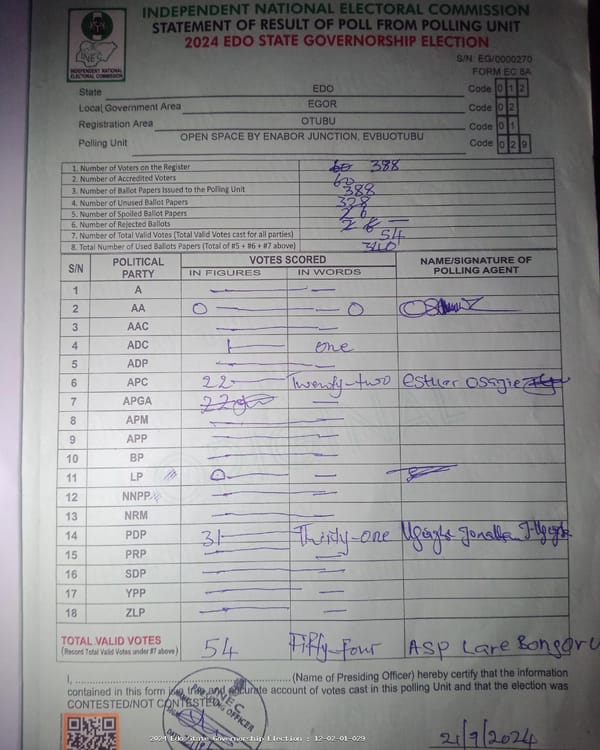 INDEPENDENT NATIONAL ELECTORAL COMMISSION
STATEMENT OF RESULT OF POLL FROM POLLING UNIT
2024 EDO STATE GOVERNORSHIP ELECTION
INEC
INDEPENDENT NATIONAL ELECTORAL COMMISSION
S/N: EG/0000270
FORM EC 8A
State EDO Code 0 1 2
Local Government Area EGOR Code 0 2
Registration Area OTUBU Code 0 1
Polling Unit OPEN SPACE BY ENABOR JUNCTION, EVBUOTUBU Code 0 2 9
1. Number of Voters on the Register 388
2. Number of Accredited Voters 60
3. Number of Ballot Papers Issued to the Polling Unit 388
4. Number of Unused Ballot Papers 328
5. Number of Spoiled Ballot Papers
6. Number of Rejected Ballots
7. Number of Total Valid Votes (Total Valid Votes cast for all parties) 54
8. Total Number of Used Ballots Papers (Total of #5 + #6 + #7 above)
S/N POLITICAL PARTY VOTES SCORED NAME/SIGNATURE OF POLLING AGENT
IN FIGURES IN WORDS
1 A — —
2 AA 0 — 0
3 AAC — —
4 ADC 1 one
5 ADP — —
6 APC 22 Twenty-two Esther Osagie
7 APGA —
8 APM — —
9 APP — —
10 BP — —
11 LP 0 —
12 NNPP — —
13 NRM — —
14 PDP 31 Thirty-one
15 PRP — —
16 SDP — —
17 YPP — —
18 ZLP — —
TOTAL VALID VOTES 54 Fifty-Four ASP Lare
(Record Total Valid Votes under #7 above)
I, (Name of Presiding Officer) hereby certify that the information
contained in this form is a true and accurate account of votes cast in this polling Unit and that the election was
CONTESTED/NOT CONTESTED
INEC
PRESIDING OFFICER
21/9/2024
2024 Edo State Governorship Election : 12-02-01-029